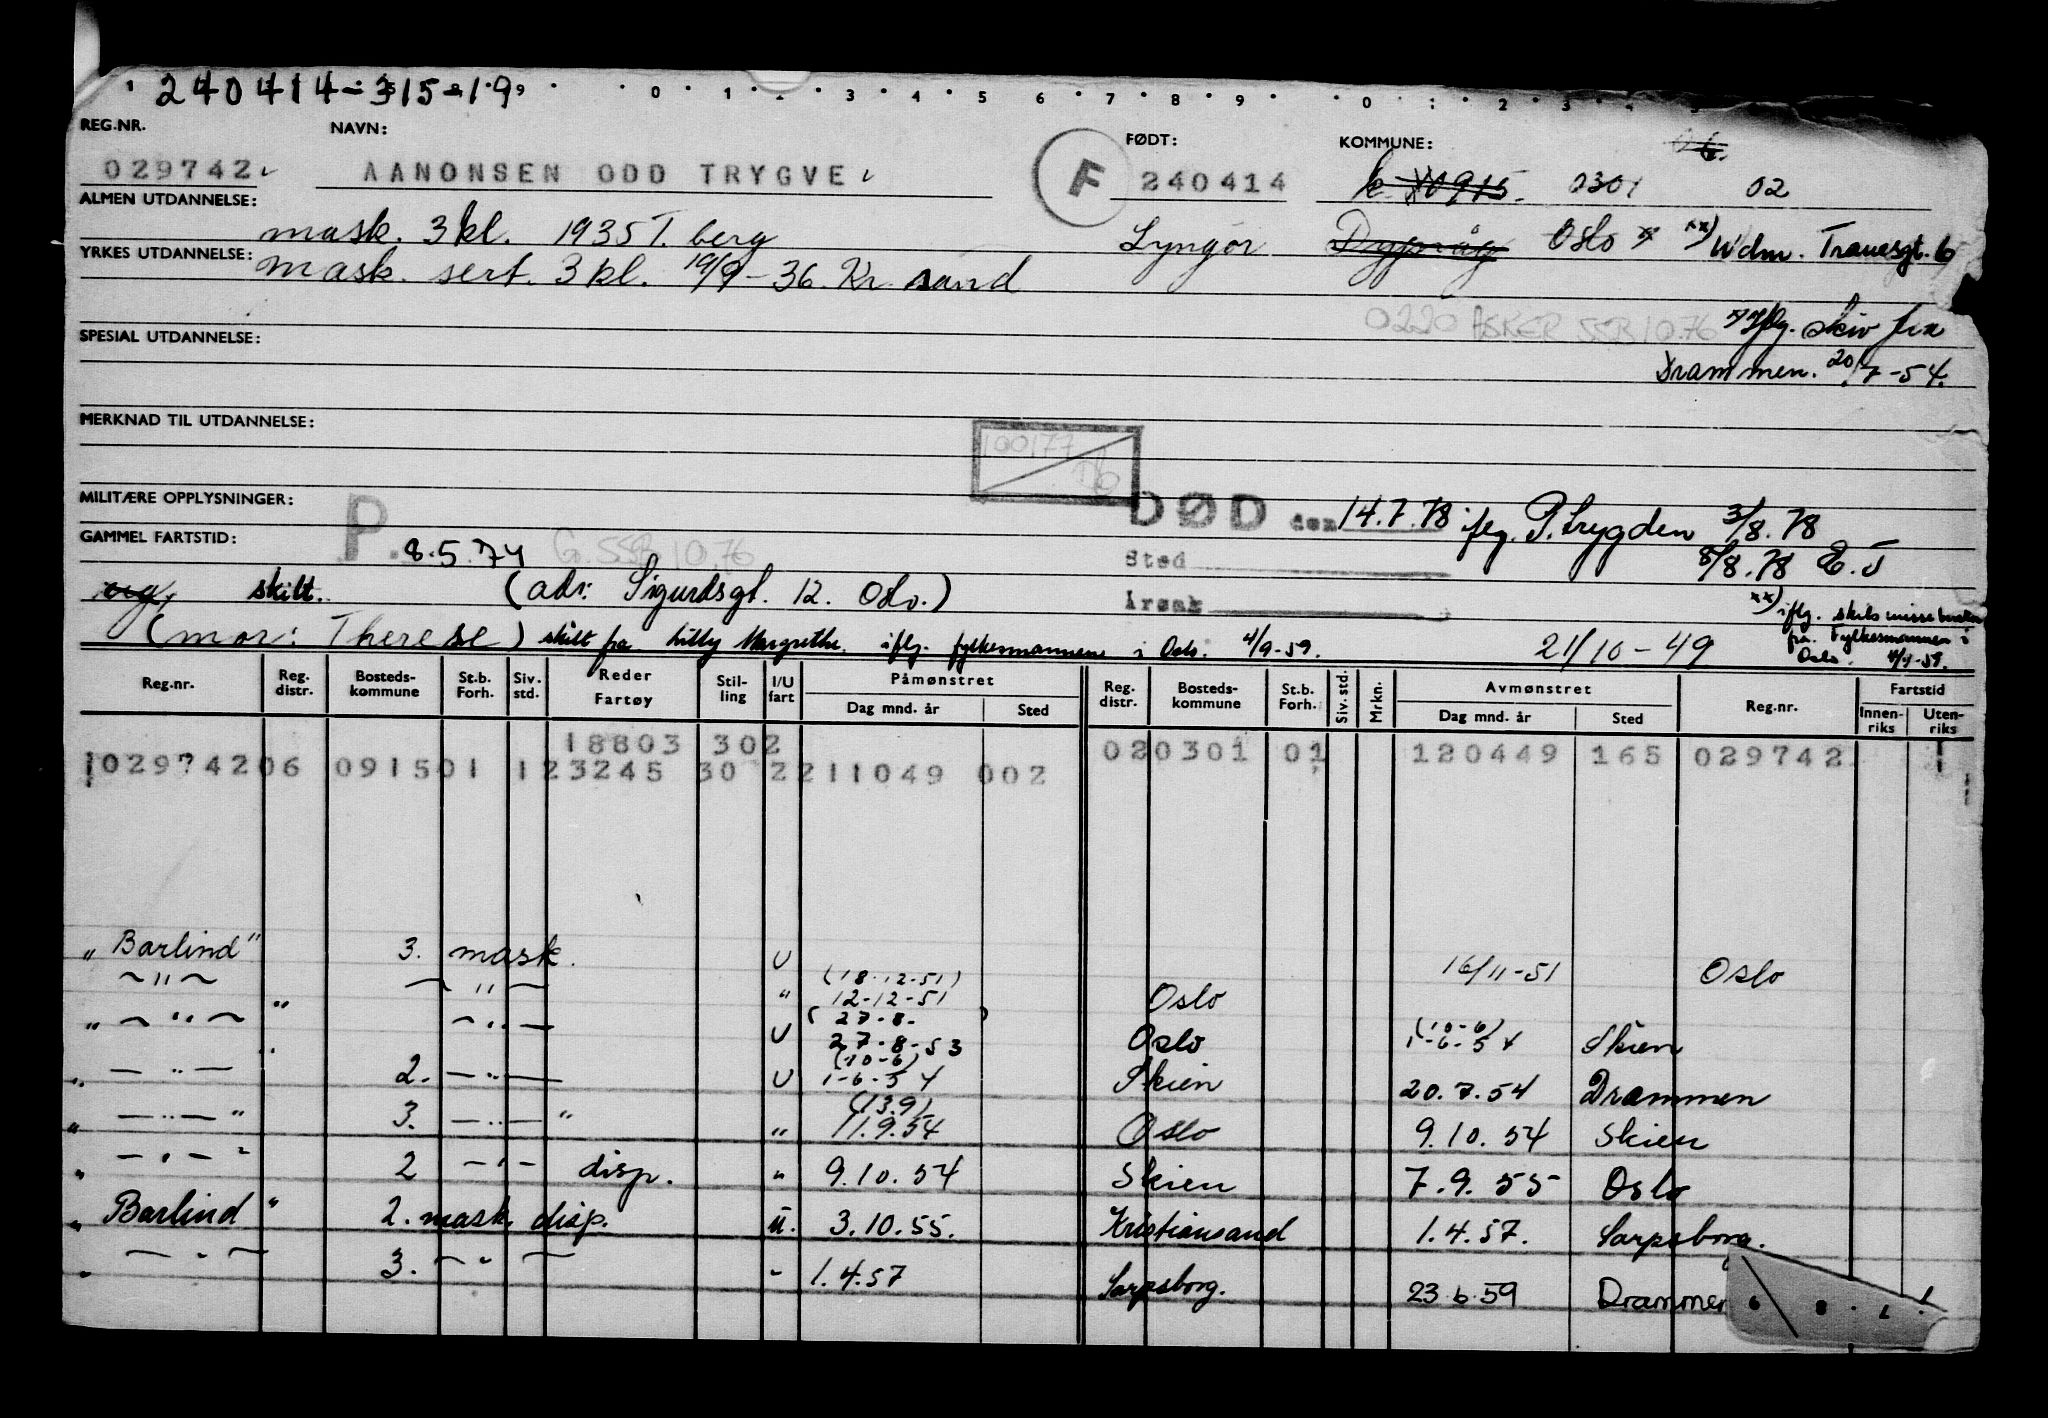 240414-315-19
REG.NR. NAVN: FØDT: KOMMUNE:
029742 AANONSEN ODD TRYGVE F 240414 0915. 0301 02
ALMEN UTDANNELSE: mask. 3 kl. 1935 T. berg Lyngør Dypvåg Oslo x xx) Wdm. Tranesgt. 6
YRKES UTDANNELSE: mask. sert. 3 kl. 19/9-36. Kr. sand
0220 ASKER SSB 10.76 x) Iflg. skiv fra
SPESIAL UTDANNELSE: Drammen. 20/7-54.
MERKNAD TIL UTDANNELSE:
100177
MILITÆRE OPPLYSNINGER: DØD den 14.7.78 iflg. P.trygden 3/8.78
GAMMEL FARTSTID: P. 8.5.74 G. SSB 10.76 Sted 8/8.78 E.J
ug, skilt. (adr: Sigurdsgt. 12. Oslo.) Årsak
xx) iflg. skilsmissebevilen
(mor: Therese) skilt fra Lilly Margrethe. iflg. fylkesmannen i Oslo. 4/9-59. 21/10-49 fra Fylkesmannen i
Oslo. 4/9-59.
Reg.nr. Reg. distr. Bosteds-kommune St.b. Forh. Siv. std. Reder Fartøy Stil-ling I/U fart Påmønstret Dag mnd. år Sted Reg. distr. Bosteds-kommune St.b. Forh. Siv. std. Mrkn. Avmønstret Dag mnd. år Sted Reg.nr. Fartstid Innen-riks Uten-riks
18803 302 020301 01 120449 165 029742
029742 06 0915 01 1 23245 30 2 211049 002
„Barlind" 3. mask. U 16/11-51 Oslo
~ " ~ ~ " ~ " (18.12.51) 12-12-51 Oslo
„ ~ " ~ " ~ " — U (27.8- ) 27.8-53 Oslo (10-6) 1-6-54 Skien
„ — " — " 2. — " — U (10-6) 1-6-54 Skien 20.7.54 Drammen
„ — " — " 3. — " — " " (13.9) 11.9.54 Oslo 9.10.54 Skien
„ — " — " 2 — " — disp. " 9.10.54 Skien 7.9.55 Oslo
„ Barlind " 2. mask. disp. u. 3.10.55. Kristiansand 1.4.57. Sarpsborg.
„ — " — 3. ~ " ~ " 1.4.57 Sarpsborg. 23.6.59 Drammen